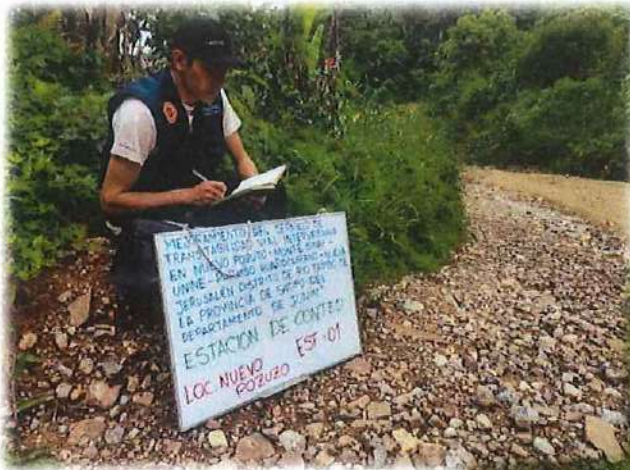 MEJORAMIENTO DEL
TRANSITABILIDAD VIAL INTERURBANA
EN NUEVO POZUZO - MONTE SINAI -
UNINE -
JERUSALÉN DISTRITO DE RIO TAMBO DE
LA PROVINCIA DE SATIPO DEL
DEPARTAMENTO DE JUNIN"
ESTACION DE CONTEO
LOC. NUEVO
POZUZO
EST :01